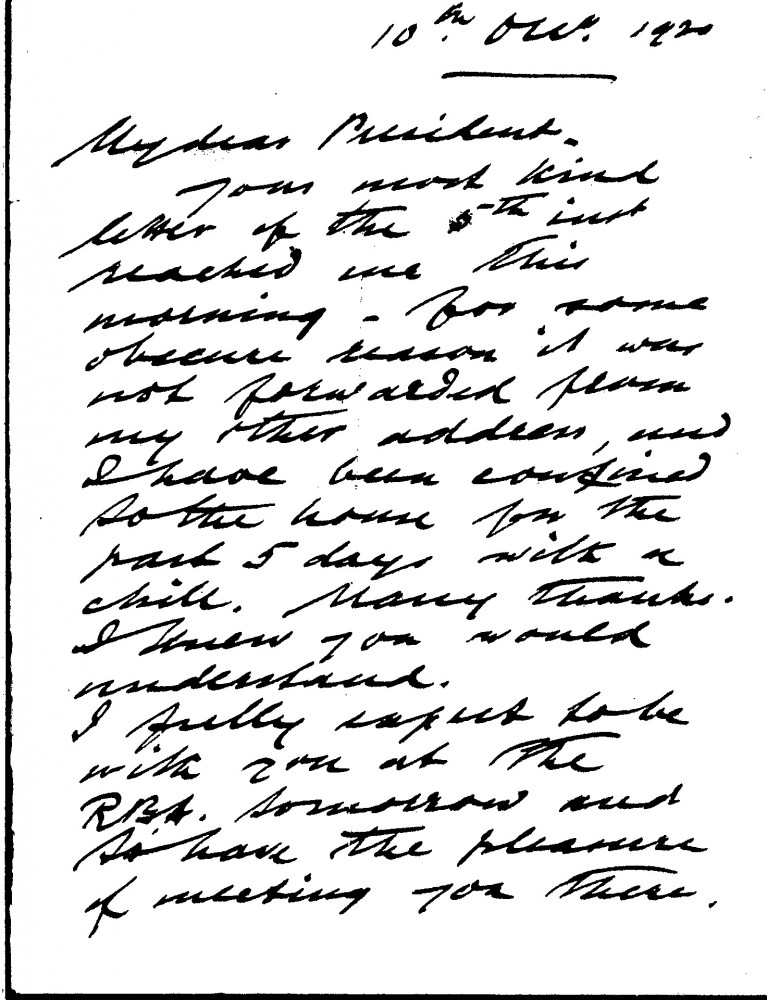 10th Decr. 1920
My dear President.
Your most kind
letter of the 5th inst
reached me this
morning - For some
obscure reason it was
not forwarded from
my other address, and
I have been confined
to the house for the
past 5 days with a
chill. Many thanks.
I knew you would
understand.
I fully expect to be
with you at the
RBA. tomorrow and
to have the pleasure
of meeting you there.